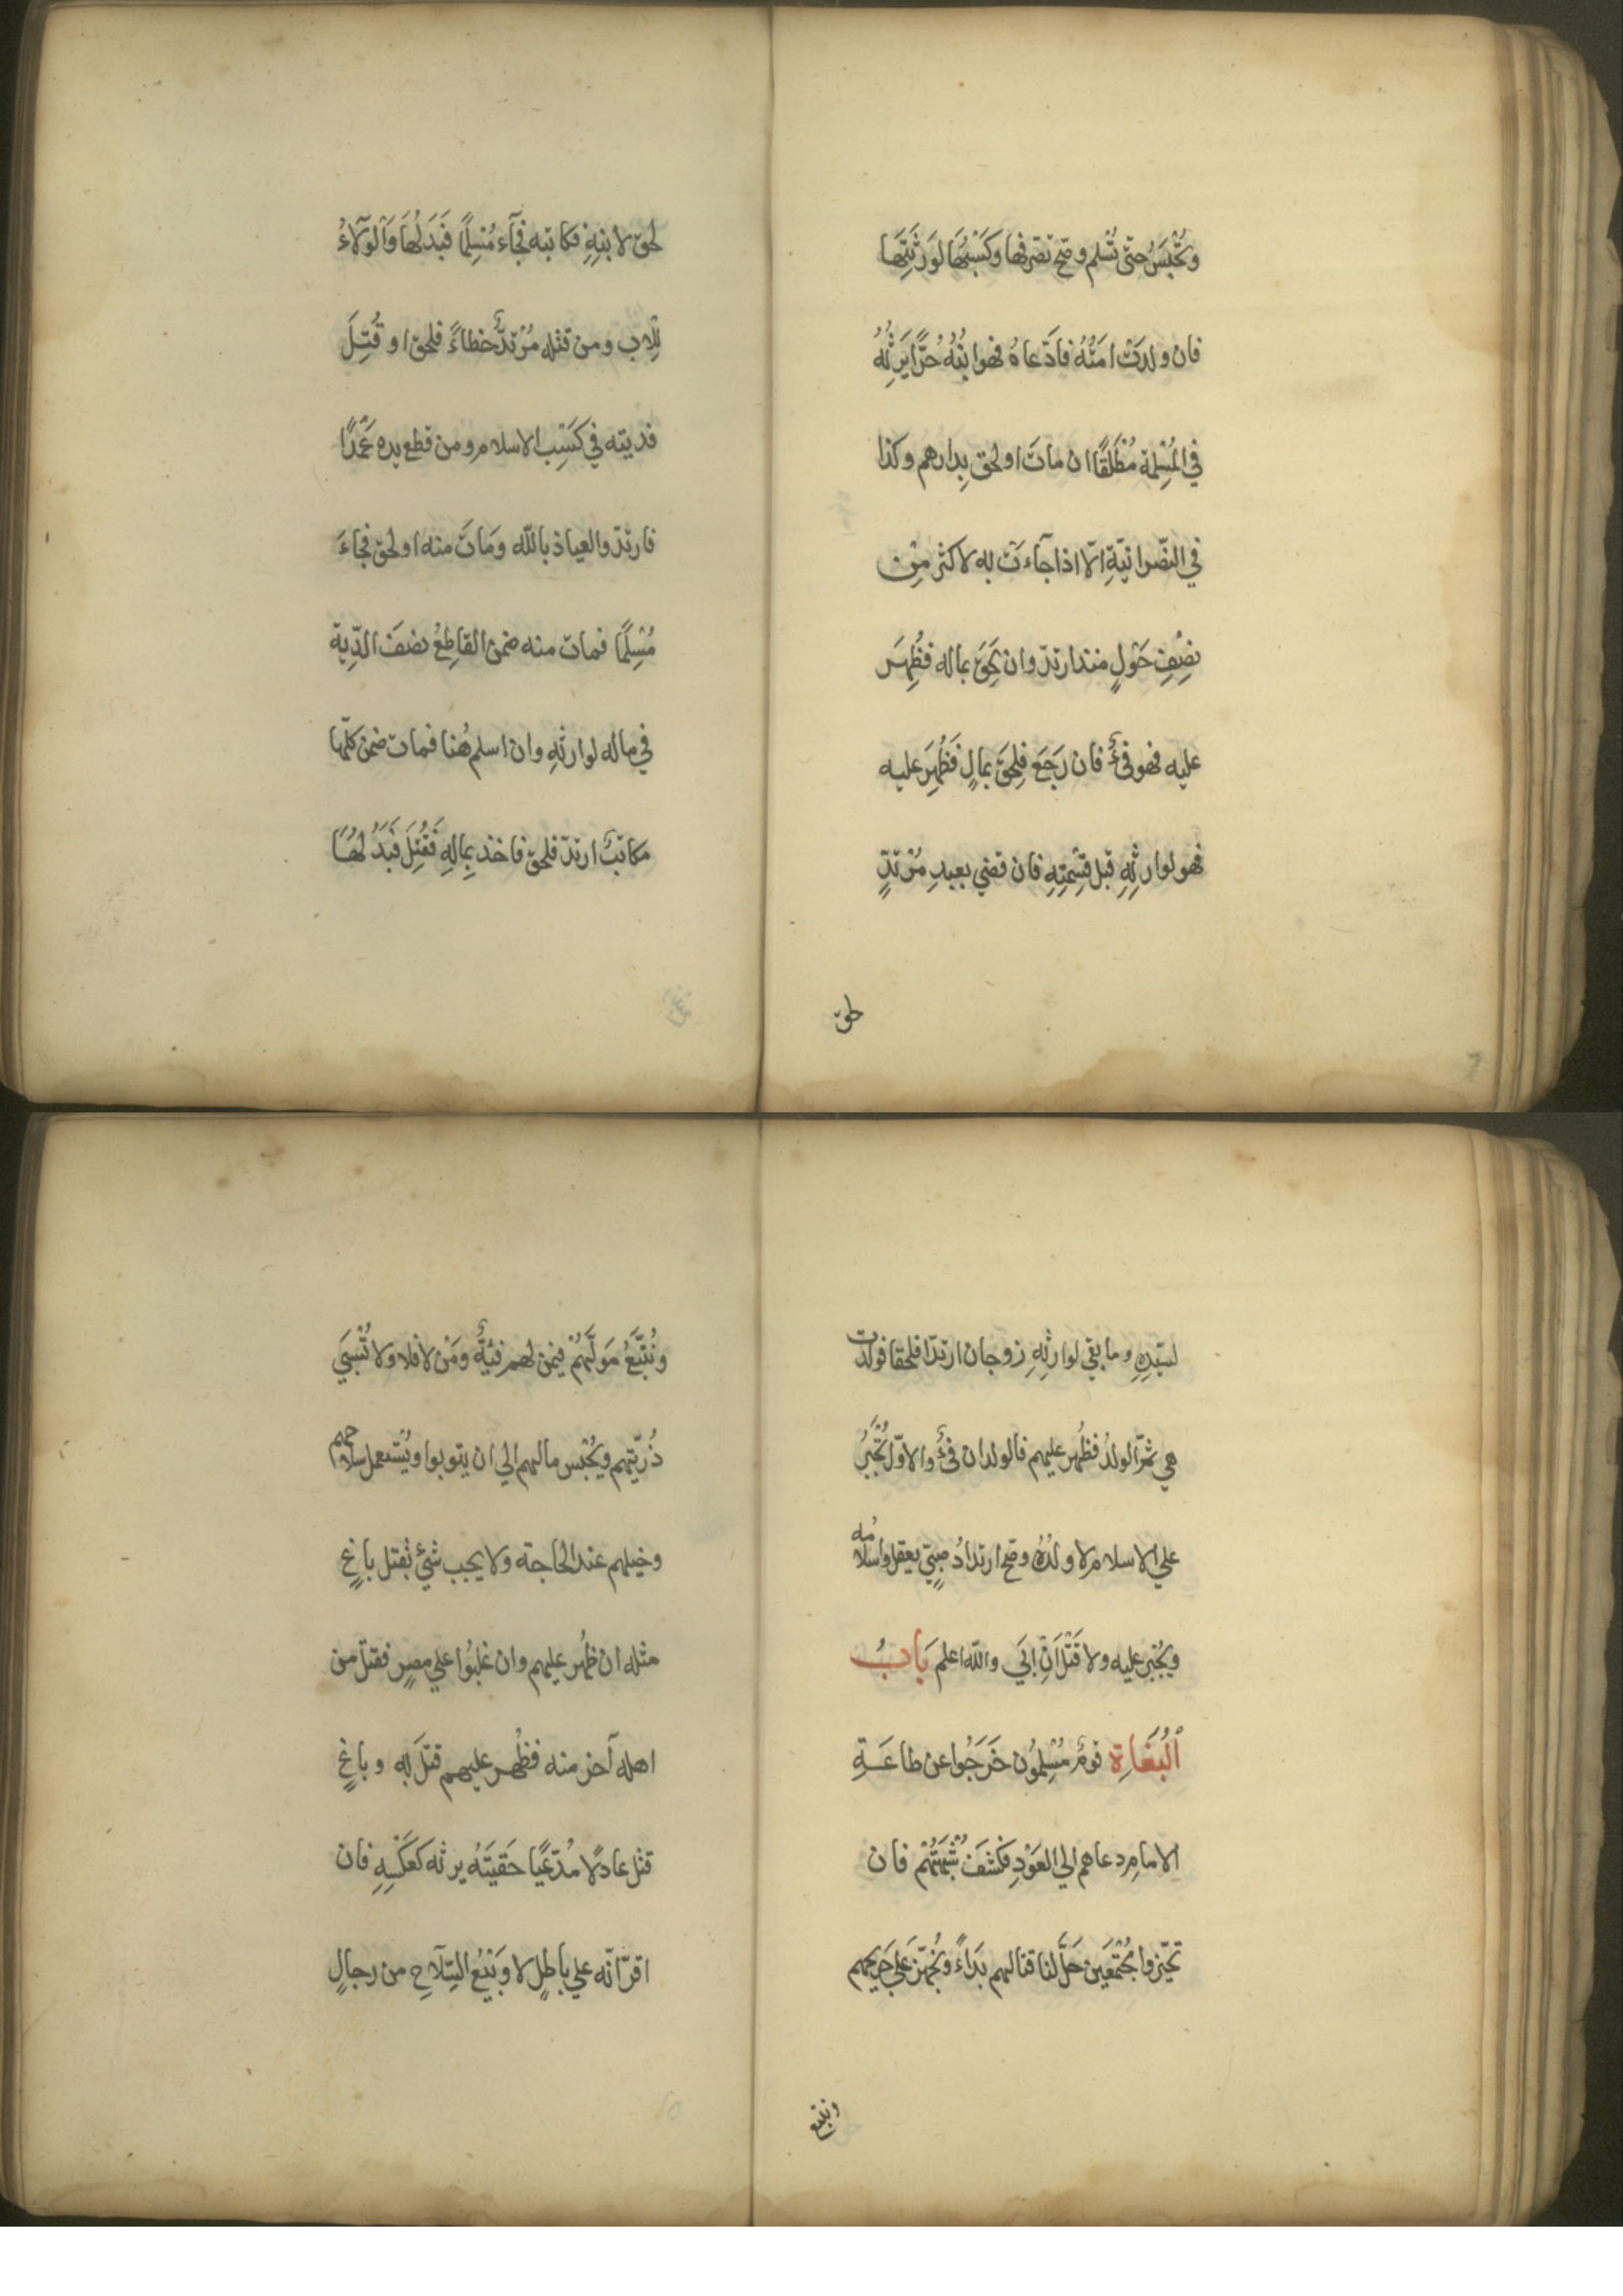 وَتُحْبَسُ حتّى تُسْلم وصحّ تصرفها وكَسْبُهَا لوَرَثَتِهَا
فان ولدَتْ امَتُهُ فادّعاهُ فهوا بْنُهُ حُرًّا يَرِثُهُ
في المُسْلِمَة مُطْلَقًا ان ماتَ او لحق بِدارهم وكذا
في النّصْرانيّةِ الّا اذا جآءَتْ به لاكثر مِن
نِصْفِ حَوْلٍ منذ ارتدّ وان لَحِقَ بماله فظُهِرَ
عليه فهو فئٌ فان رَجَعَ فلِحَقَ بمالٍ فَظُهِرَ عليه
فهو لوارثِهِ قبل قِسْمَتِهِ فان قضي بعبدِ مُرْتدٍّ
لحق
لحق لابنِهِ فكاتبه فجآء مُسْلِمًا فَبَدَلُهَا وَالْوَلآءُ
لِلْابِ ومن قتله مُرْتدٌّ خطاءً فلحق او قُتِلَ
فديته في كَسْبِ الاسلام ومن قطع يده عَمْدًا
فارتدّ والعياذ باللّه ومَاتَ منه او لحق فجاءَ
مُسْلِمًا فمات منه ضمن القاطِعُ نصفَ الدّيِة
في ماله لوارثِهِ وان اسلم هُنا فمات ضمن كلّها
مكاتبٌ ارتدّ فلحق فاخذ بِمالِهِ فَقُتِلَ فَبَدَلُهَا
لسيّدِهِ وما بقي لوارثِهِ زوجان ارتدّا فلحقا فولدت
هي ثمّ الولدُ فظُهر عليهم فالولدان فئٌ والاوّل يُجْبَرُ
علي الاسلام لا ولدُهُ وصحّ ارتدادُ صبيٍّ يعقل واسلامُه
ويُجْبر عليه ولا قَتْلَ اِنْ ابَي واللّه اعلم بَابُ
اَلْبُغَاةِ قومٌ مُسْلِمُون خَرَجُوا عن طاعَةِ
الامامِ دعاهم الي العَوْدِ فكَشَفَ شُبْهَتَهُمْ فان
تحيّزوا مُجْتَمِعَين حَلَّ لنا قتالهم بَدَاءً ونُجْهِزَ عَلَي جَرِيحهِم
ونتبع
ونُتَّبَعُ مُوَلِّيَهُمْ فيمن لهم فئِةٌ ومَنْ لا فلا ولا تُسْبَي
ذُرّيّتهم ويُحْبس مالهم الي ان يتوبوا ويُسْتعمل سلاحهم
وخيلهم عند الحاجة ولا يجب شئٌ بقتل باغٍ
مثله ان ظُهر عليهم وان غلبُوا علي مصرٍ فقتل من
اهله آخر منه فظُهر عليهم قتلَ به وباغٍ
قتل عادلًا مُدّعيًا حَقِيَتَهُ يرثه كعَكْسِهِ فان
اقرّ انّه علي باطلٍ لا وَبَيْعُ السِّلَاحِ من رجالٍ